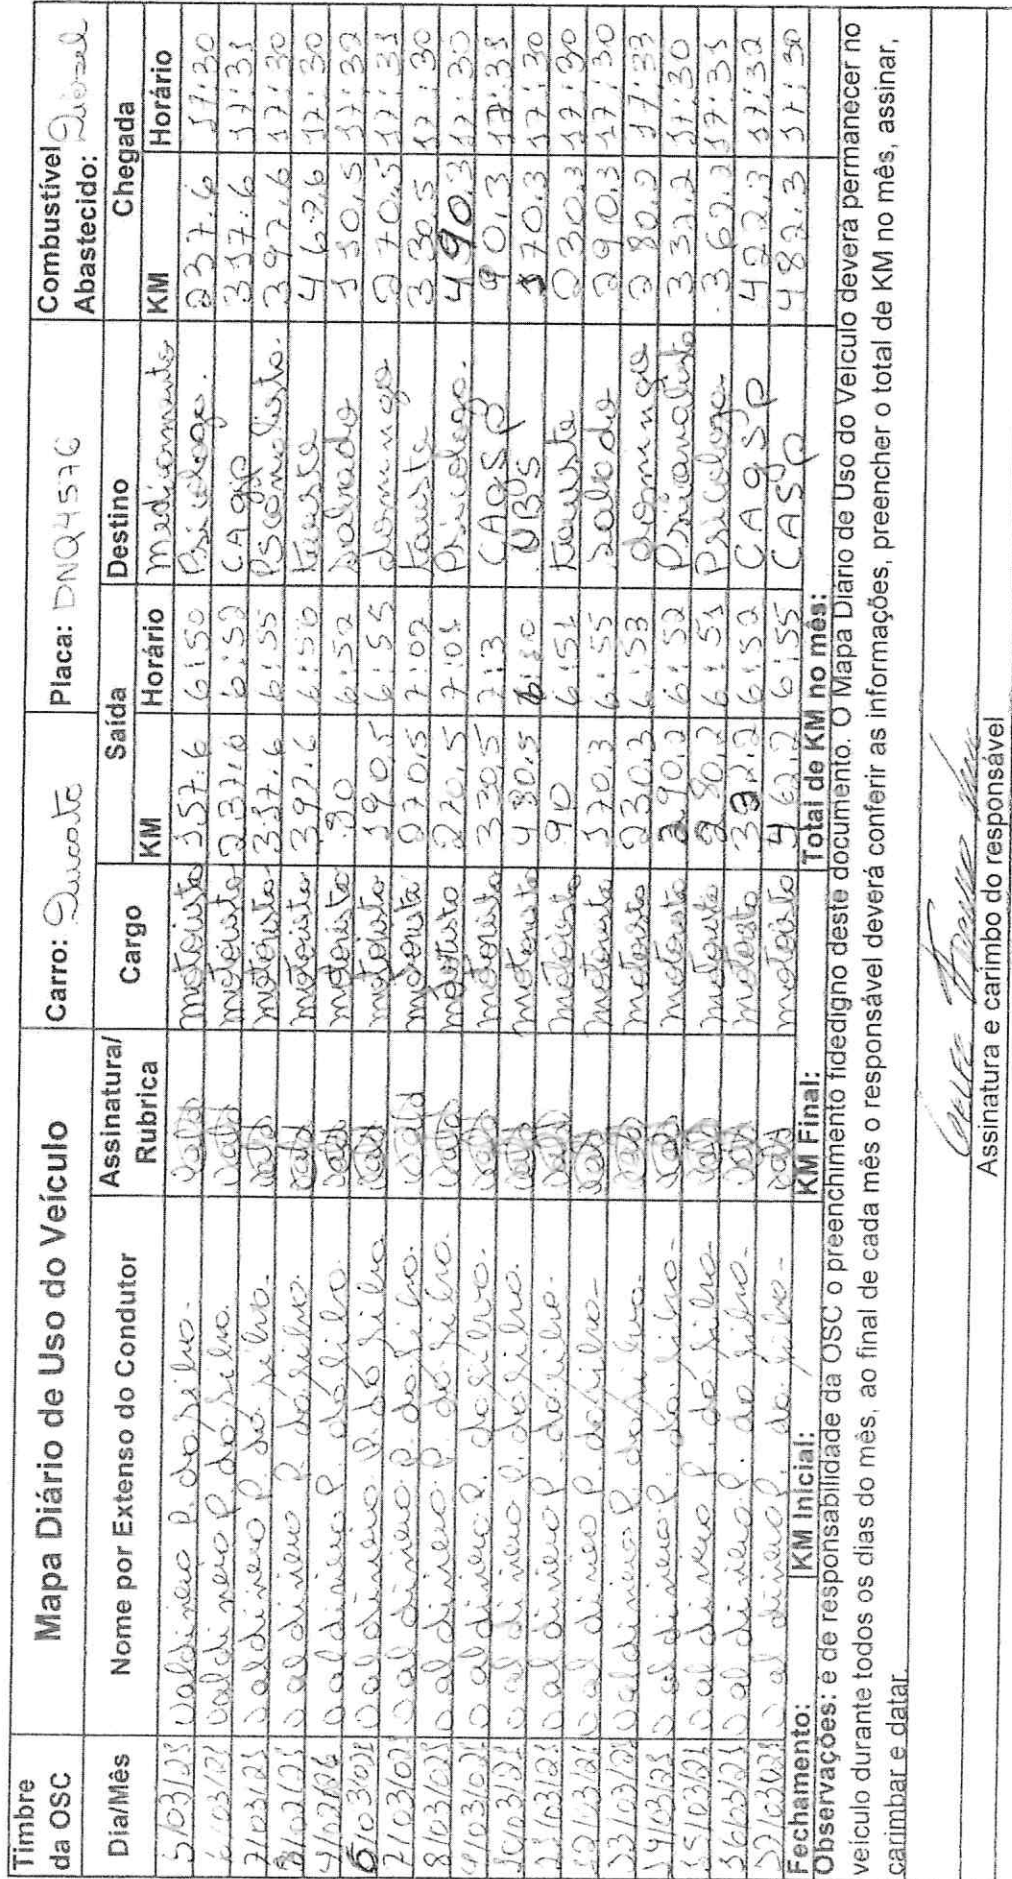 Timbre da OSC
Mapa Diário de Uso do Veículo
Carro: Ducato
Placa: DNQ4576
Combustível Abastecido: Diesel
Dia/Mês
Nome por Extenso do Condutor
Assinatura/ Rubrica
Cargo
Saída
Destino
Chegada
KM
Horário
KM
Horário
Medicamento
Valdineio P. da silva. Vald motorista 157.6 6:50 Psicologa. 237.6 17:30
Valdineio P. da silva. Vald motorista 237.6 6:52 CAgsp 317.6 17:31
Valdineio P. da silva. Vald motorista 317.6 6:55 Psconolista. 397.6 17:30
Valdineio P. da silva. Vald motorista 397.6 6:50 Tauste 467.6 17:30
Valdineio P. da silva. Vald motorista 90 6:52 salvado 190.5 17:32
Valdineio P. da silva. Vald motorista 190.5 6:55 domingo 270.5 17:31
Valdineio P. da silva. Vald motorista 270.5 7:02 Tauste 330.5 17:30
8/03/21 Valdineio P. da silva. Vald motorista 220.5 7:01 Psicologo. 490.3 17:30
Valdineio P. da silva. Vald motorista 330.5 7:13 CAgSP 90.3 17:31
10/03/21 Valdineio P. da silva. Vald motorista 480.5 6:50 UBS 170.3 17:30
Valdineio P. da silva. Vald motorista 90 6:51 Tauste 230.3 17:30
12/03/21 Valdineio P. da silva. Vald motorista 170.3 6:55 salvado 290.3 17:30
13/03/21 Valdineio P. da silva. Vald motorista 230.3 6:53 domingo 280.2 17:33
14/03/21 Valdineio P. da silva. Vald motorista 290.2 6:52 Psicanalista 332.2 17:30
15/03/21 Valdineio P. da silva. Vald motorista 280.2 6:51 Psicologa 362.2 17:31
16/03/21 Valdineio P. da silva. Vald motorista 6:52 CAgSP 422.3 17:32
17/03/21 Valdineio P. da silva. Vald motorista 462.2 6:55 CASP 482.3 17:30
Fechamento:
KM Inicial:
KM Final:
Total de KM no mês:
Observações: e de responsabilidade da OSC o preenchimento fidedigno deste documento. O Mapa Diário de Uso do Veiculo devera permanecer no
veículo durante todos os dias do mês, ao final de cada mês o responsável deverá conferir as informações, preencher o total de KM no mês, assinar,
carimbar e datar.
Assinatura e carimbo do responsável